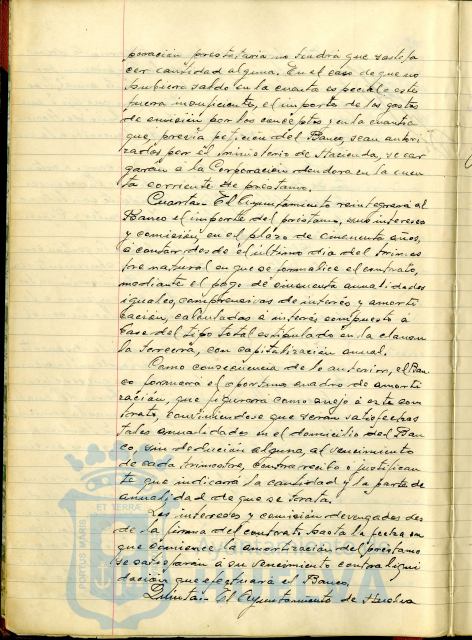 poración prestataria no tendrá que satisfa
cer cantidad alguna. En el caso de que no
hubiera saldo en la cuenta especial o este
fuera insuficiente, el importe de los gastos
de emisión por los conceptos y en la cuantía
que, previa petición del Banco, sean autori
zados por el Ministerio de Hacienda, se car
garán a la Corporación deudora en la cuen
ta corriente de préstamo.
Cuarta.- El Ayuntamiento reintegrará al
Banco el importe del préstamo, sus intereses
y comisión, en el plazo de cincuenta años,
a contar desde el último día del trimes
tre natural en que se formalice el contrato,
mediante el pago de cincuenta anualidades
iguales, comprensivas de interés y amorti
zación, calculadas a interés compuesto a
base del tipo total estipulado en la cláusu
la tercera, con capitalización anual.
Como consecuencia de lo anterior, el Ban
co formará el oportuno cuadro de amorti
zación, que figurará como anejo a este con
trato, conviniéndose que serán satisfechas
tales anualidades en el domicilio del Ban
co, sin deducción alguna, al vencimiento
de cada trimestre, contra recibo o justifican
te que indicará la cantidad y la parte de
anualidad de que se trata.
Los intereses y comisión devengados des
de la firma del contrato hasta la fecha en
que comience la amortización del préstamo
se satisfarán a su vencimiento contra liqui
dación que efectuará el Banco.
Quinta.- El Ayuntamiento de Huelva
PORTUS MARIS ET TERRÆ